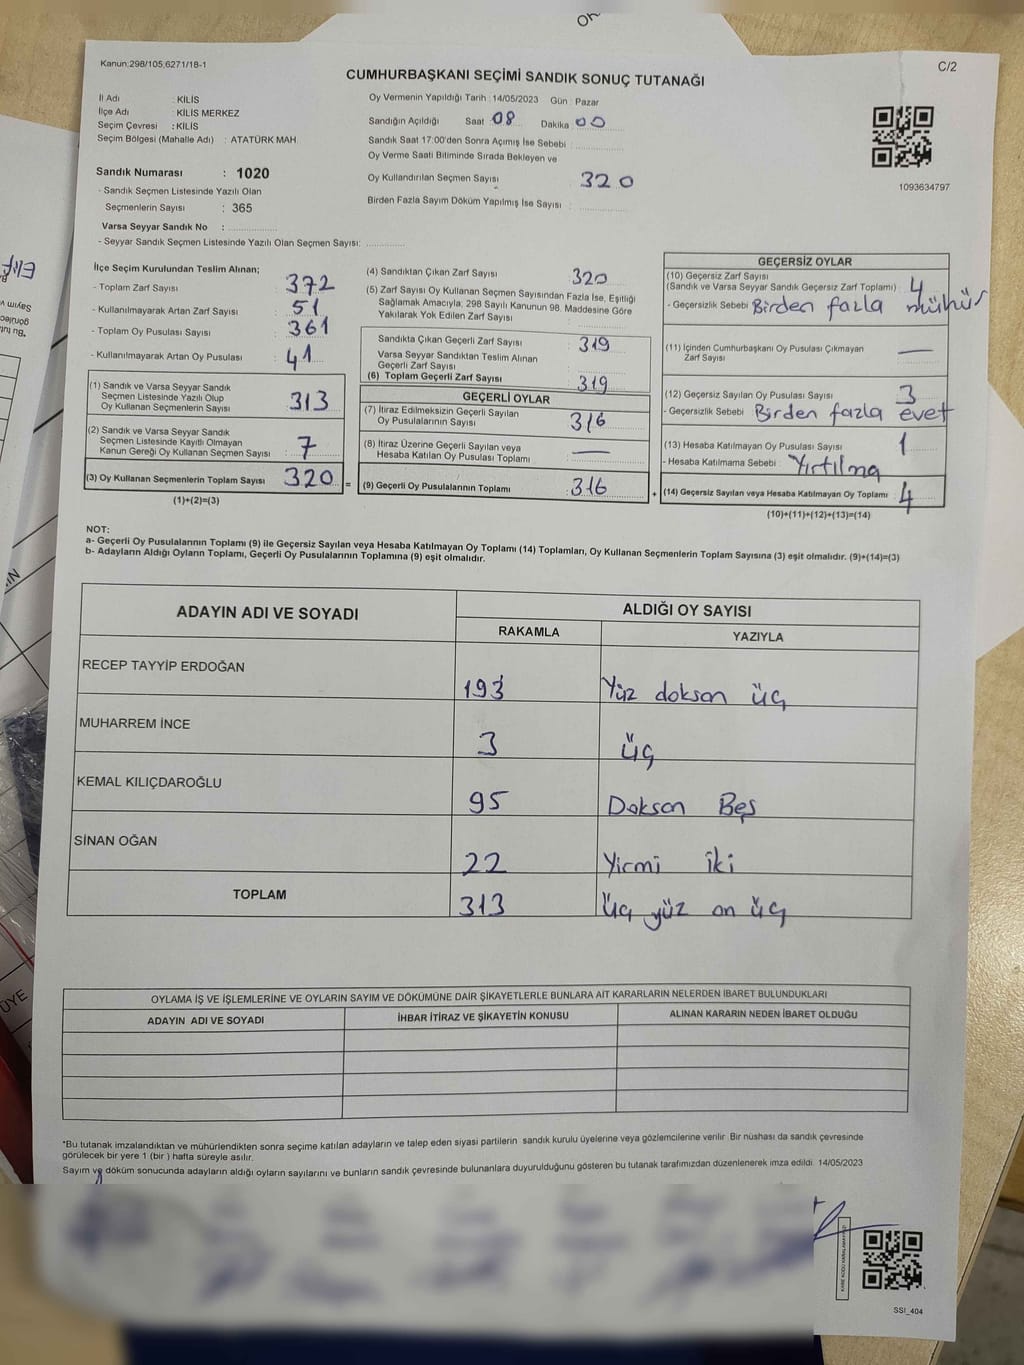 Kanun;298/105,6271/18-1
C/2
CUMHURBAŞKANI SEÇİMİ SANDIK SONUÇ TUTANAĞI
İl Adı : KİLİS
İlçe Adı : KİLİS MERKEZ
Seçim Çevresi : KİLİS
Seçim Bölgesi (Mahalle Adı) : ATATÜRK MAH.
Oy Vermenin Yapıldığı Tarih : 14/05/2023 Gün : Pazar
Sandığın Açıldığı Saat 08 Dakika 00
Sandık Saat 17:00'den Sonra Açımış İse Sebebi :
Oy Verme Saati Bitiminde Sırada Bekleyen ve
Oy Kullandırılan Seçmen Sayısı 320
Birden Fazla Sayım Döküm Yapılmış İse Sayısı :
1093634797
Sandık Numarası : 1020
- Sandık Seçmen Listesinde Yazılı Olan
Seçmenlerin Sayısı : 365
Varsa Seyyar Sandık No :
- Seyyar Sandık Seçmen Listesinde Yazılı Olan Seçmen Sayısı:
İlçe Seçim Kurulundan Teslim Alınan;
- Toplam Zarf Sayısı 372
- Kullanılmayarak Artan Zarf Sayısı 51
- Toplam Oy Pusulası Sayısı 361
- Kullanılmayarak Artan Oy Pusulası 41
(1) Sandık ve Varsa Seyyar Sandık
Seçmen Listesinde Yazılı Olup
Oy Kullanan Seçmenlerin Sayısı 313
(2) Sandık ve Varsa Seyyar Sandık
Seçmen Listesinde Kayıtlı Olmayan
Kanun Gereği Oy Kullanan Seçmen Sayısı : 7
(3) Oy Kullanan Seçmenlerin Toplam Sayısı 320 =
(1)+(2)=(3)
(4) Sandıktan Çıkan Zarf Sayısı 320
(5) Zarf Sayısı Oy Kullanan Seçmen Sayısından Fazla İse, Eşitliği
Sağlamak Amacıyla, 298 Sayılı Kanunun 98. Maddesine Göre
Yakılarak Yok Edilen Zarf Sayısı :
Sandıkta Çıkan Geçerli Zarf Sayısı 319
Varsa Seyyar Sandıktan Teslim Alınan
Geçerli Zarf Sayısı
(6) Toplam Geçerli Zarf Sayısı 319
GEÇERLİ OYLAR
(7) İtiraz Edilmeksizin Geçerli Sayılan
Oy Pusulalarının Sayısı 316
(8) İtiraz Üzerine Geçerli Sayılan veya
Hesaba Katılan Oy Pusulası Toplamı —
(9) Geçerli Oy Pusulalarının Toplamı 316 +
GEÇERSİZ OYLAR
(10) Geçersiz Zarf Sayısı
(Sandık ve Varsa Seyyar Sandık Geçersiz Zarf Toplamı) 4
- Geçersizlik Sebebi Birden fazla mühür
(11) İçinden Cumhurbaşkanı Oy Pusulası Çıkmayan
Zarf Sayısı —
(12) Geçersiz Sayılan Oy Pusulası Sayısı 3
- Geçersizlik Sebebi Birden fazla evet
(13) Hesaba Katılmayan Oy Pusulası Sayısı 1
- Hesaba Katılmama Sebebi : Yırtılma
(14) Geçersiz Sayılan veya Hesaba Katılmayan Oy Toplamı 4
(10)+(11)+(12)+(13)=(14)
NOT:
a- Geçerli Oy Pusulalarının Toplamı (9) ile Geçersiz Sayılan veya Hesaba Katılmayan Oy Toplamı (14) Toplamları, Oy Kullanan Seçmenlerin Toplam Sayısına (3) eşit olmalıdır. (9)+(14)=(3)
b- Adayların Aldığı Oyların Toplamı, Geçerli Oy Pusulalarının Toplamına (9) eşit olmalıdır.
ADAYIN ADI VE SOYADI ALDIĞI OY SAYISI
RAKAMLA YAZIYLA
RECEP TAYYİP ERDOĞAN 193 Yüz doksan üç
MUHARREM İNCE 3 üç
KEMAL KILIÇDAROĞLU 95 Doksan Beş
SİNAN OĞAN 22 Yirmi iki
TOPLAM 313 üç yüz on üç
OYLAMA İŞ VE İŞLEMLERİNE VE OYLARIN SAYIM VE DÖKÜMÜNE DAİR ŞİKAYETLERLE BUNLARA AİT KARARLARIN NELERDEN İBARET BULUNDUKLARI
ADAYIN ADI VE SOYADI İHBAR İTİRAZ VE ŞİKAYETİN KONUSU ALINAN KARARIN NEDEN İBARET OLDUĞU
*Bu tutanak imzalandıktan ve mühürlendikten sonra seçime katılan adayların ve talep eden siyasi partilerin sandık kurulu üyelerine veya gözlemcilerine verilir. Bir nüshası da sandık çevresinde
görülecek bir yere 1 (bir ) hafta süreyle asılır.
Sayım ve döküm sonucunda adayların aldığı oyların sayılarını ve bunların sandık çevresinde bulunanlara duyurulduğunu gösteren bu tutanak tarafımızdan düzenlenerek imza edildi. 14/05/2023
SSI_404
Elif
ÜYE